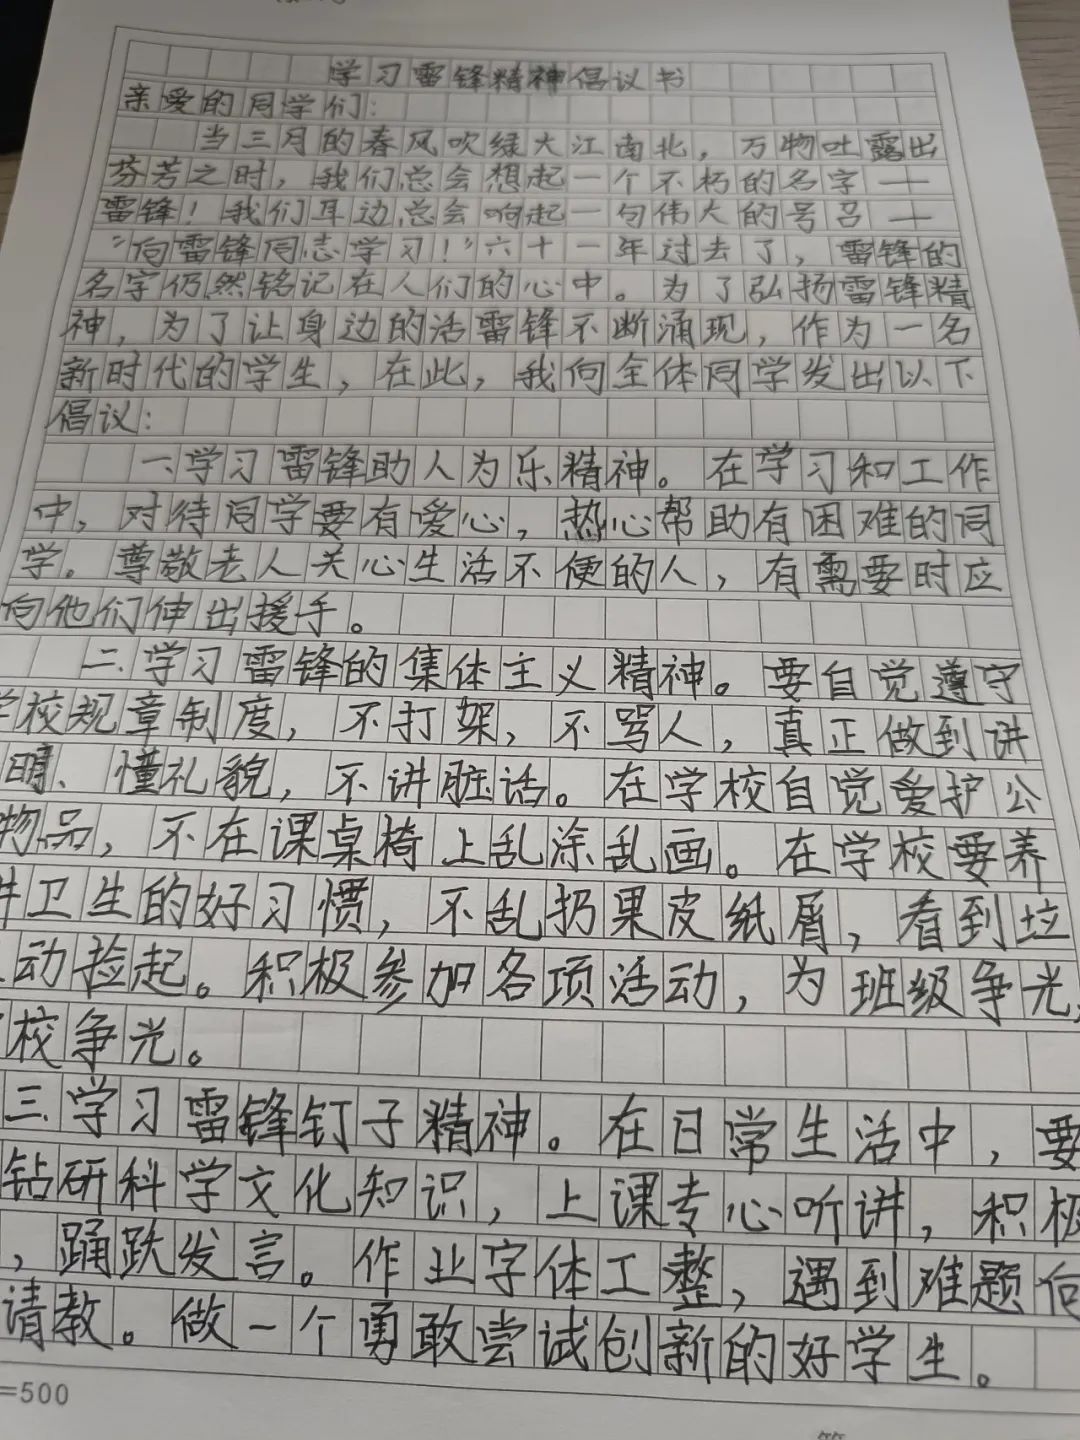 学习雷锋精神倡议书
亲爱的同学们：
当三月的春风吹绿大江南北，万物吐露出
芬芳之时，我们总会想起一个不朽的名字——
雷锋！我们耳边总会响起一句伟大的号召——
“向雷锋同志学习！”六十一年过去了，雷锋的
名字仍然铭记在人们的心中。为了弘扬雷锋精
神，为了让身边的活雷锋不断涌现，作为一名
新时代的学生，在此，我向全体同学发出以下
倡议：
一、学习雷锋助人为乐精神。在学习和工作
中，对待同学要有爱心，热心帮助有困难的同
学。尊敬老人关心生活不便的人，有需要时应
向他们伸出援手。
二、学习雷锋的集体主义精神。要自觉遵守
学校规章制度，不打架，不骂人，真正做到讲
明、懂礼貌，不讲脏话。在学校自觉爱护公
物品，不在课桌椅上乱涂乱画。在学校要养
卫生的好习惯，不乱扔果皮纸屑，看到垃
动捡起。积极参加各项活动，为班级争光，
校争光。
三、学习雷锋钉子精神。在日常生活中，要
钻研科学文化知识，上课专心听讲，积极
，踊跃发言。作业字体工整，遇到难题向
请教。做一个勇敢尝试创新的好学生。
=500